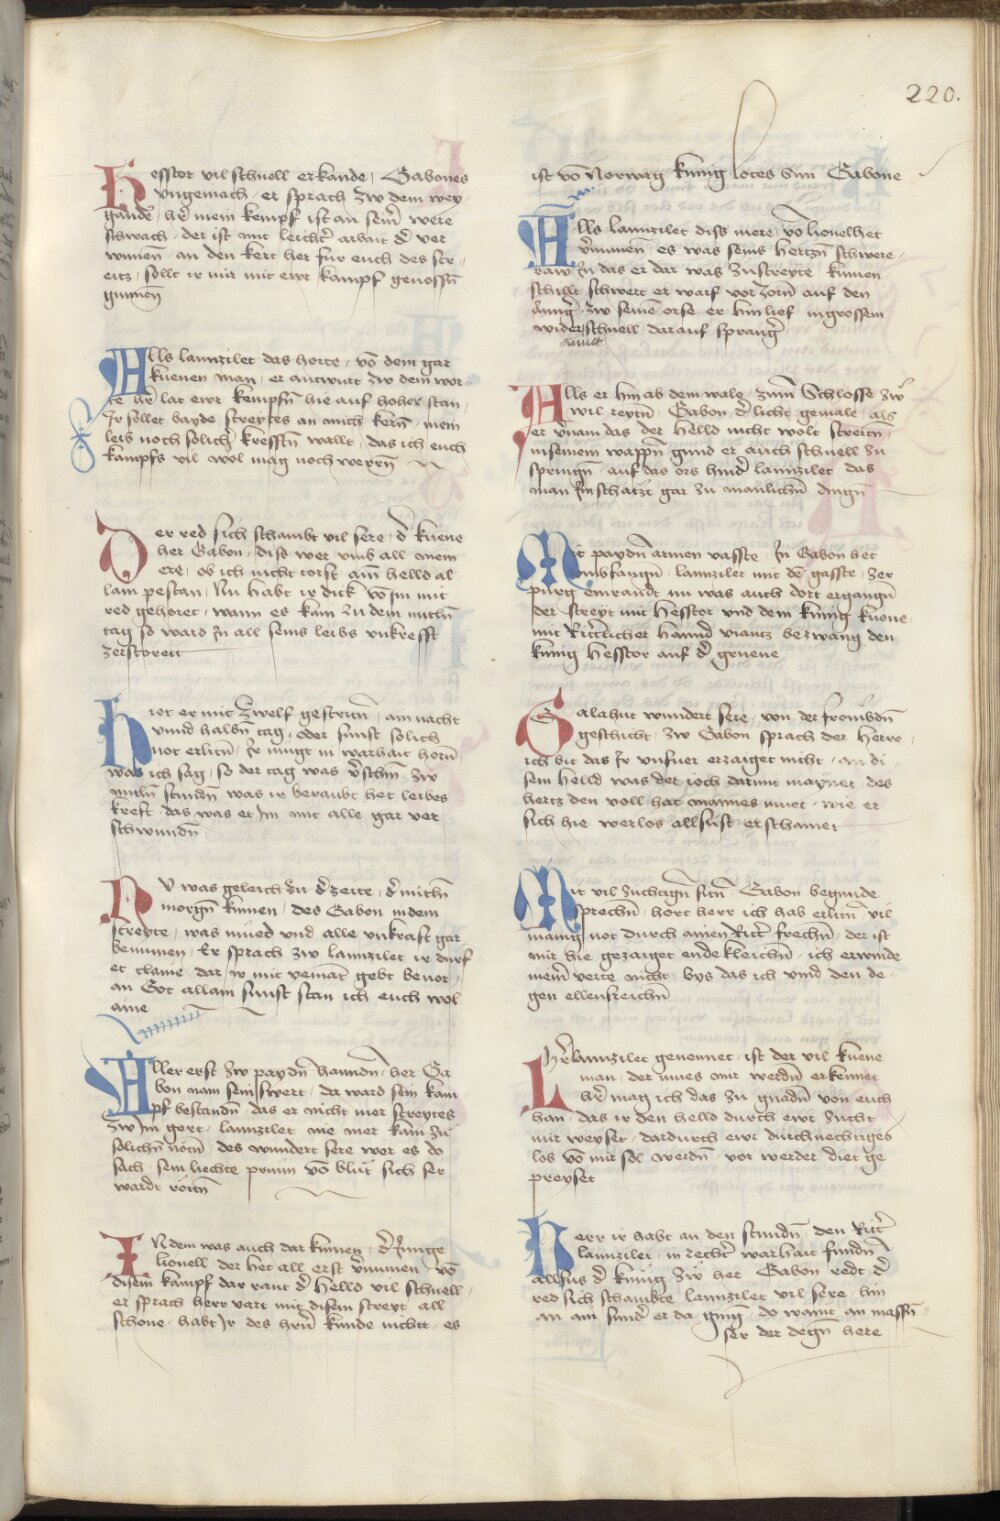 220.
Hesstor vil schnell erkande / Gabones
vngemach / er sprach zw dem wey
gande / her̄ mein kempf ist an sein̄ were
schwach / der ist mit leichter arbait der ver
wunnen / an den kert her für euch des str
eitz / sollt ir mir mit ewr kampf genossn̄
gunnen
Alls lannzilet das horte / võ dem gar
kuenen man / er antwurt zw dem wor-
te her̄ lat ewr kempfn̄ hie auf hoher stan /
Ir sollet bayde streytes an mich kern̄ / mein
leib noch solicher kressten wallt / das ich euch
kampfs vil wol mag noch wern̄
Der red sich schambt vil sere / der kuene
her Gabon / disd wer vmb all mein
ere / ob ich nicht torst ain helld al
lain pestan / Nu habt ir dick võ im mit
red gehoret / wann es kam zu dem mittn̄
tag so ward in all seins leibs vnkrefft
zerstoreit
Hiet er mit zwelf gestritn̄ / ain nacht
vnnd halbn̄ tag / oder sunst solich
not erlitn̄ / Ir mugt in warhait horn̄
was ich sag / so der tag was verschin̄ / zw
mittn̄ stundn̄ was ir beraubt het leibes
kreft / das was er im mit alle gar ver
schwundn̄
Nv was geleich du der zeite / der mittn̄
morgn̄ kumen / des Gabon in dem
streyte / was mued vnd alle vnkraft gar
benumen / Er sprach zw lannzilet ir durf
et claine dar
an Got allain sunst stan ich euch wol
aine
Aller erst zw paydn̄ hanndn̄ / her Ga
bon nam sein swert / da ward sein kam
pf bestandn̄ das er nicht mer streytes
zw im gert / lannzilet nie mer kam zu
solichn̄ nötn̄ / des wundert sere wer es do
sach / sein liechte prünn võ blüt sich ser
wardt rottn̄
Indem was auch dar kumen / der Junge
lionell der het all erst vernumen / võ
disem kampf dar rant der helld vil schnell /
er sprach herr vart mit disem streyt all
schone / habt ir des hern̄ kunde nicht / es
ist võ Norwaig kunig lotes sun Gabone
Alls lannzilet diss mere / võ lionelhet
vernumen / es was seins hertzn̄ schwere -
raw in das er dar was zu streyte kumen
schillt schwert er warf vor zorn̄ auf den
zw seinē orse er hin lief in grossem
wider schnell darauf sprang
Alls er hin ab dem wale / zum Schlosse zw
wil reytn̄ / Gabon der licht gemale / als
er vernam das der helld nicht wolt streitn̄ /
in seinem wappn̄ gund er auch schnell zu
springn̄ / auf das ors hinder lannzilet das
man Im schatzt gar zu manlichn̄ dingn̄
Mit paydn̄ armen vasste / In Gabon het
vmbfangn̄ / lannzilet mit dē gasste / Zer
purg einrandt nu was auch dort ergangn̄
der streyt mit Hesstor vnd dem kunig kuene
mit Ritterlicher hannd viantz bezwang den
kunig Hesstor auf der gruene
Galahut wundert sere / von der frombdn̄
geschicht / zw Gabon sprach der herre /
ich bit das Ir vnfuer erzaiget nicht / an di
sem helld was der ioch darumb maynet / des
hertz den voll hat mannes muet / wie er
sich hie werlos allsust erschainet
Mit vil zuchtign̄ sitn̄ / Gabon begunde
sprechn̄ / hort herr ich hab erlitn̄ vil
manig not durch ainen Ritter frechn̄ / der ist
mir hie gezaiget endekleichn̄ / ich erwinde
mein̄ verte nicht / bys das ich vind den de-
gen ellensreichn̄
Her̄ Lannzilet genennet / ist der vil kuene
man / der mues mir werdn̄ erkennet
her̄ mag ich das zu gnadn̄ von euch
han / das ir den helld durch ewr zucht
mir weyset / dardurch ewr durchnechtiges
los võ mir sol werdn̄ / vor werder diet ge
preyset
Herr ir habt an den stundn̄ / den Ritter
lannzilet / in rechter warhait fundn̄
allsus der kunig zw her Gabon redt der
red sich schambte lannzilet vil sere / hin
an ain sunder er da ging / do waint an massn̄
ser der degn̄ here